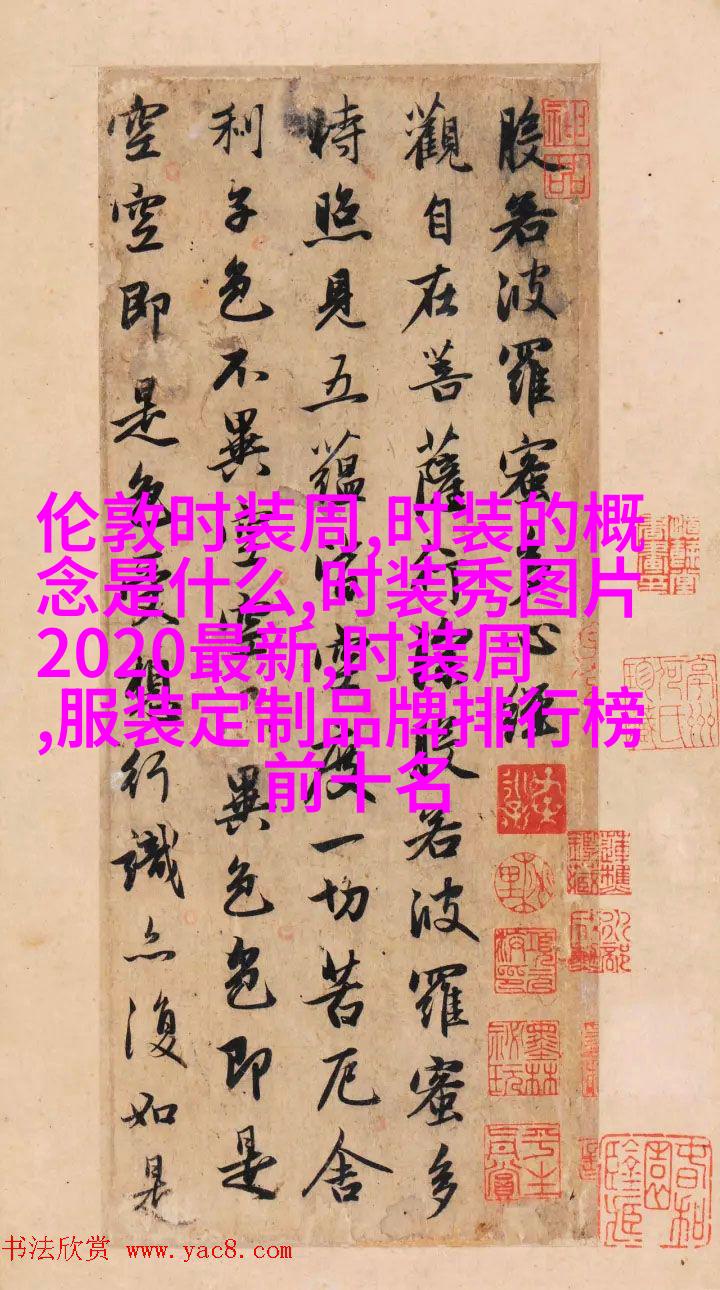 般若波羅蜜多心經
觀自在菩薩行深般若波羅蜜多
時照見五蘊皆空度一切苦厄舍
利子色不異空空不異色色即是
空空即是色受想行識亦復如是
神品
墨林祕玩
伦敦时装周,时装的概
念是什么,时装秀图片
2020最新,时装周
,服装定制品牌排行榜
前十名
书法欣赏 www.yac8.com